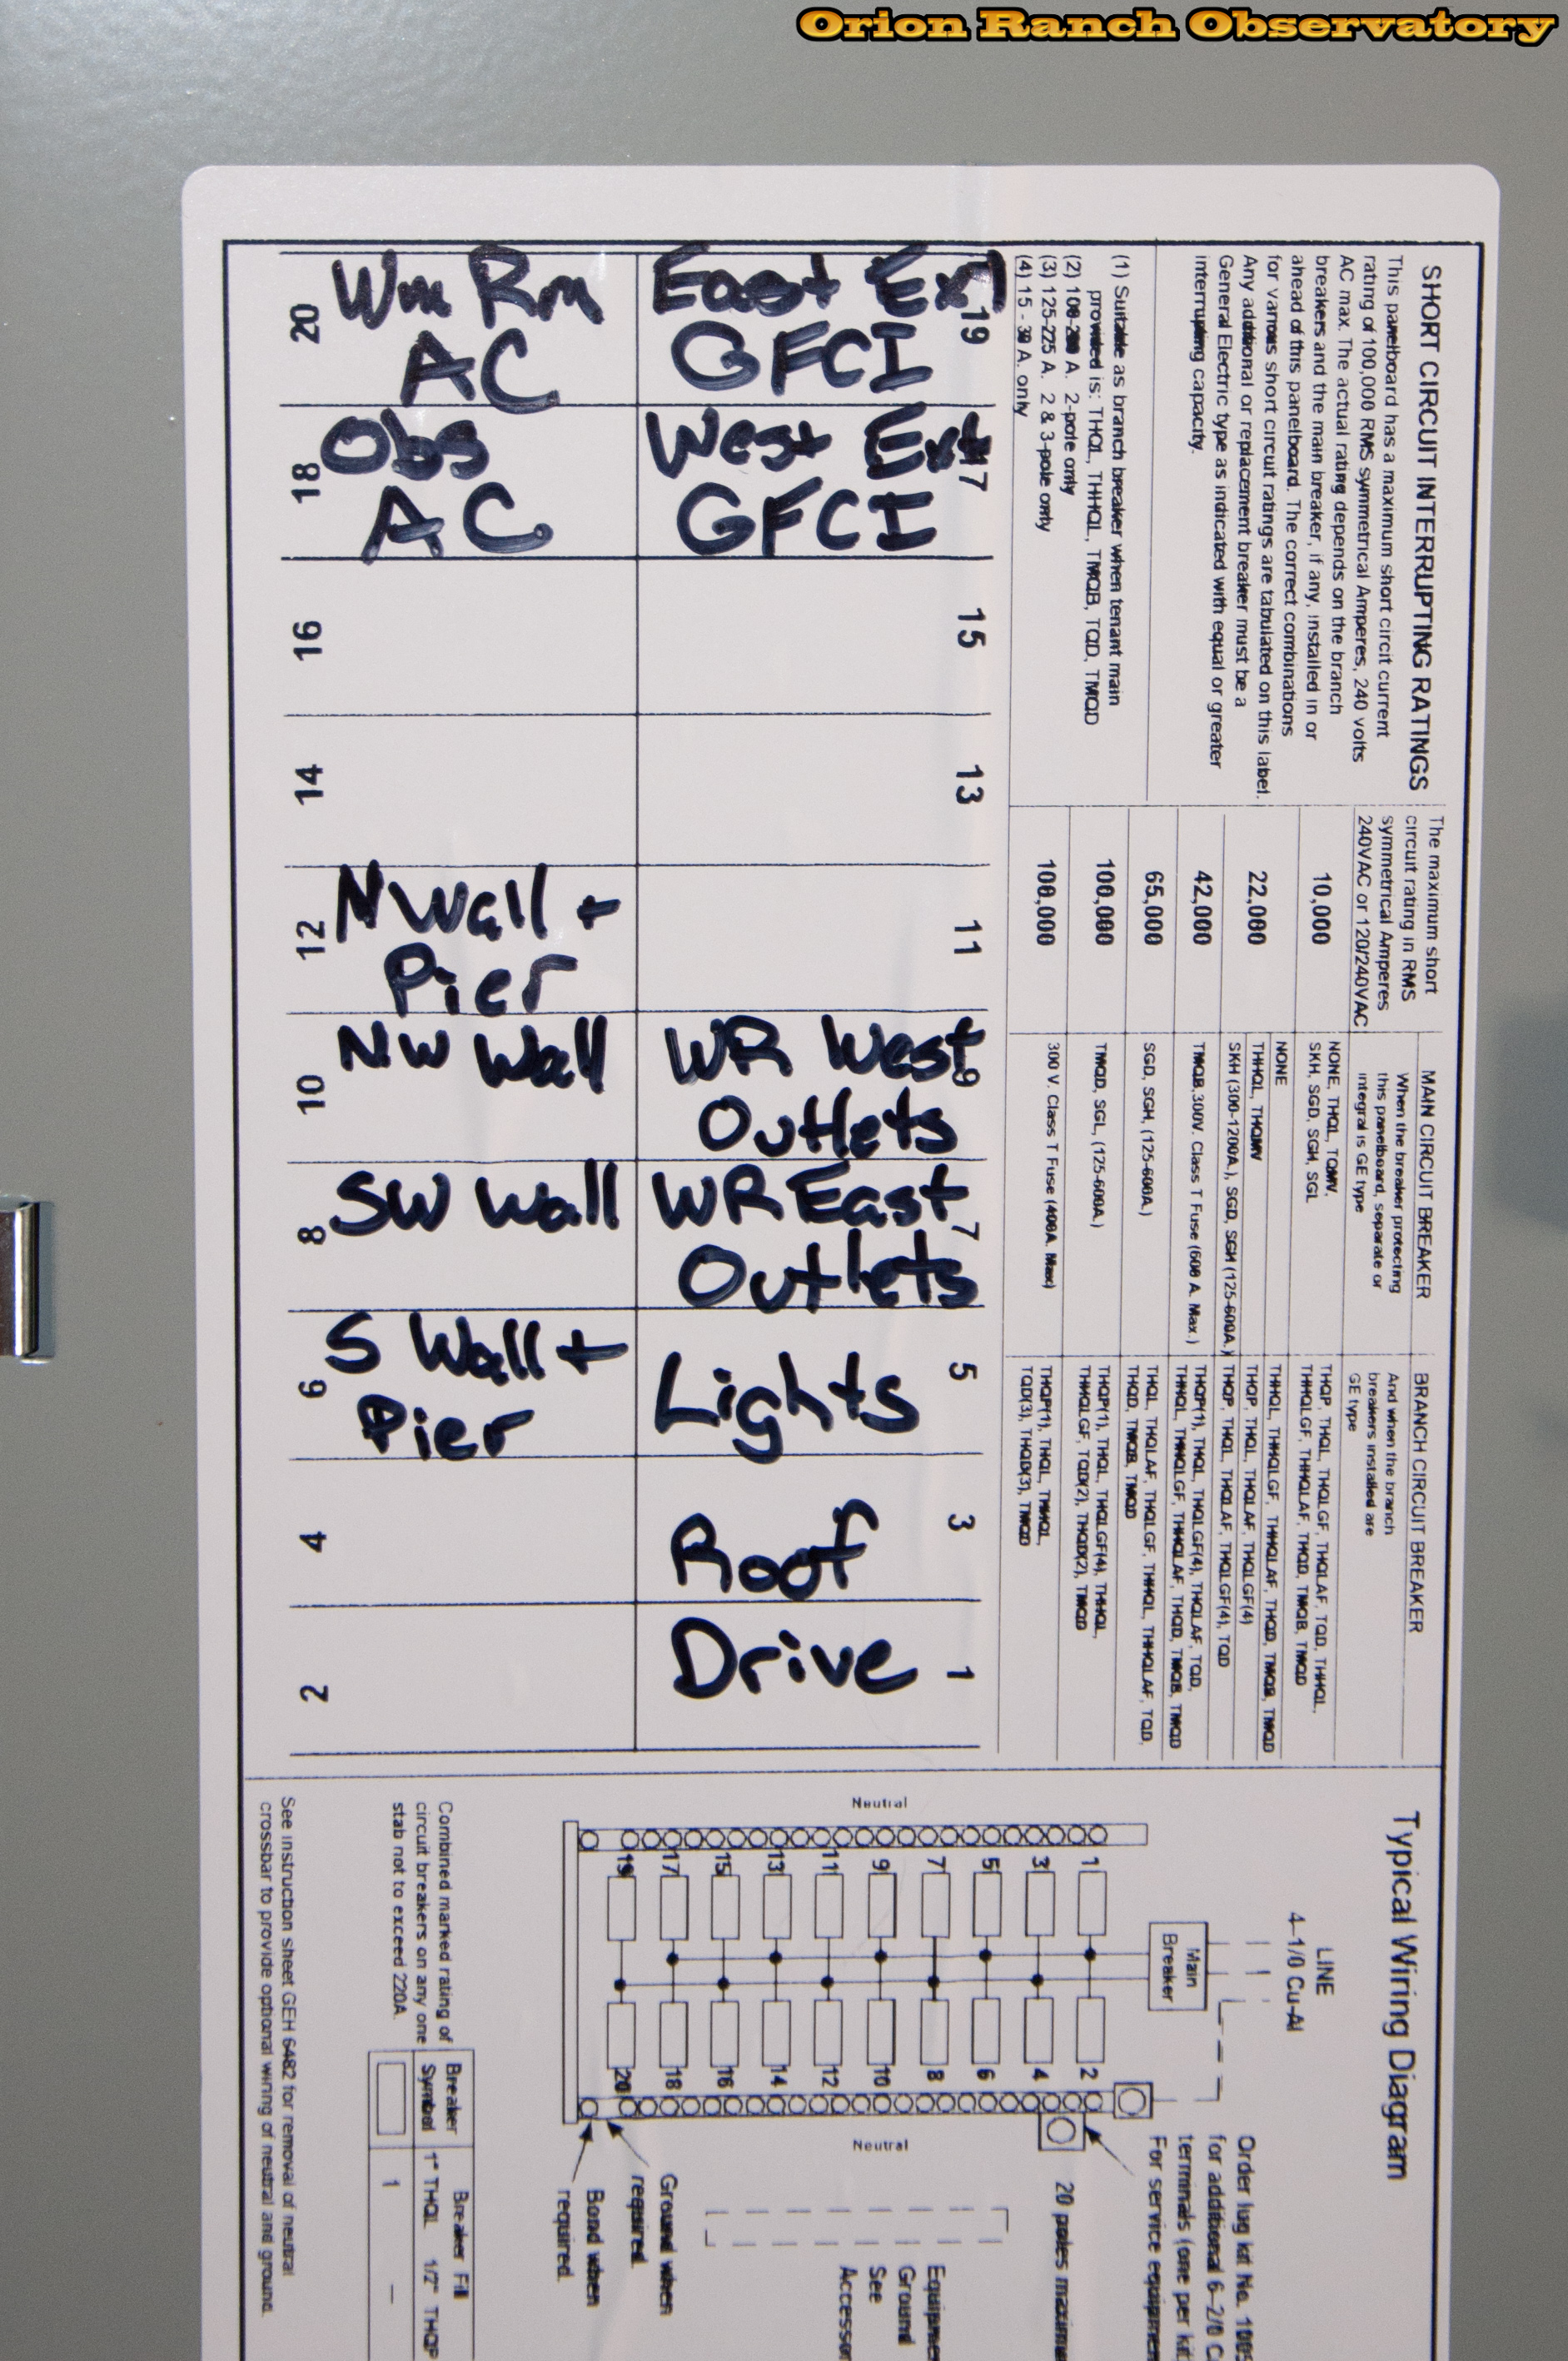 Orion Ranch Observatory
Wm Rm
AC
20
East Ext
GFCI
19
Obs
AC
18
West Ext
GFCI
17
16
15
14
13
N Wall +
Pier
12
11
NW Wall
10
WR West
Outlets
9
SW Wall
8
WR East
Outlets
7
S Wall +
Pier
6
Lights
5
4
Roof
3
2
Drive
1
SHORT CIRCUIT INTERRUPTING RATINGS
This panelboard has a maximum short circit current
rating of 100,000 RMS symmetrical Amperes, 240 volts
AC max. The actual rating depends on the branch
breakers and the main breaker, if any, installed in or
ahead of this panelboard. The correct combinations
for various short circuit ratings are tabulated on this label.
Any additional or replacement breaker must be a
General Electric type as indicated with equal or greater
interrupting capacity.
(1) Suitable as branch breaker when tenant main
provided is: THQL, THHQL, TMQB, TQD, TMQD
(2) 100-200 A. 2-pole only
(3) 125-225 A. 2 & 3-pole only
(4) 15 - 30 A. only
The maximum short
circuit rating in RMS
symmetrical Amperes
240VAC or 120/240VAC
10,000
22,000
42,000
65,000
100,000
100,000
MAIN CIRCUIT BREAKER
When the breaker protecting
this panelboard, separate or
integral is GE type
NONE, THQL, TQMV,
SKH, SGD, SGH, SGL
NONE
THHQL, THQMV
SKH (300-1200A.), SGD, SGH (125-600A.)
TMQB,300V. Class T Fuse (600 A. Max.)
SGD, SGH, (125-600A.)
TMQD, SGL, (125-600A.)
300 V. Class T Fuse (400A. Max)
BRANCH CIRCUIT BREAKER
And when the branch
breakers installed are
GE type
THQP, THQL, THQLGF, THQLAF, TQD, THHQL,
THHQLGF, THHQLAF, THQD, TMQB, TMQD
THHQL, THHQLGF, THHQLAF, THQD, TMQB, TMQD
THQP, THQL, THQLAF, THQLGF(4)
THQP, THQL, THQLAF, THQLGF(4), TQD
THQP(1), THQL, THQLGF(4), THQLAF, TQD,
THHQL, THHQLGF, THHQLAF, THQD, TMQB, TMQD
THQL, THQLAF, THQLGF, THHQL, THHQLAF, TQD,
THQD, TMQB, TMQD
THQP(1), THQL, THQLGF(4), THHQL,
THHQLGF, TQD(2), THQD(2), TMQD
THQP(1), THQL, THHQL,
TQD(3), THQD(3), TMQD
Typical Wiring Diagram
LINE
4-1/0 Cu-Al
Main
Breaker
Neutral
1
3
5
7
9
11
13
15
17
19
2
4
6
8
10
12
14
16
18
20
Neutral
Order lug kit No.
for additional 6-2/0
terminals (one per kit
For service
20 poles
Ground
See
Ground when
required.
Bond when
required.
Combined marked rating of
circuit breakers on any one
stab not to exceed 220A.
Breaker
Symbol
Breaker Fill
1" THQL
1/2" THQP
1
–
See instruction sheet GEH 6482 for removal of neutral
crossbar to provide optional wiring of neutral and ground.